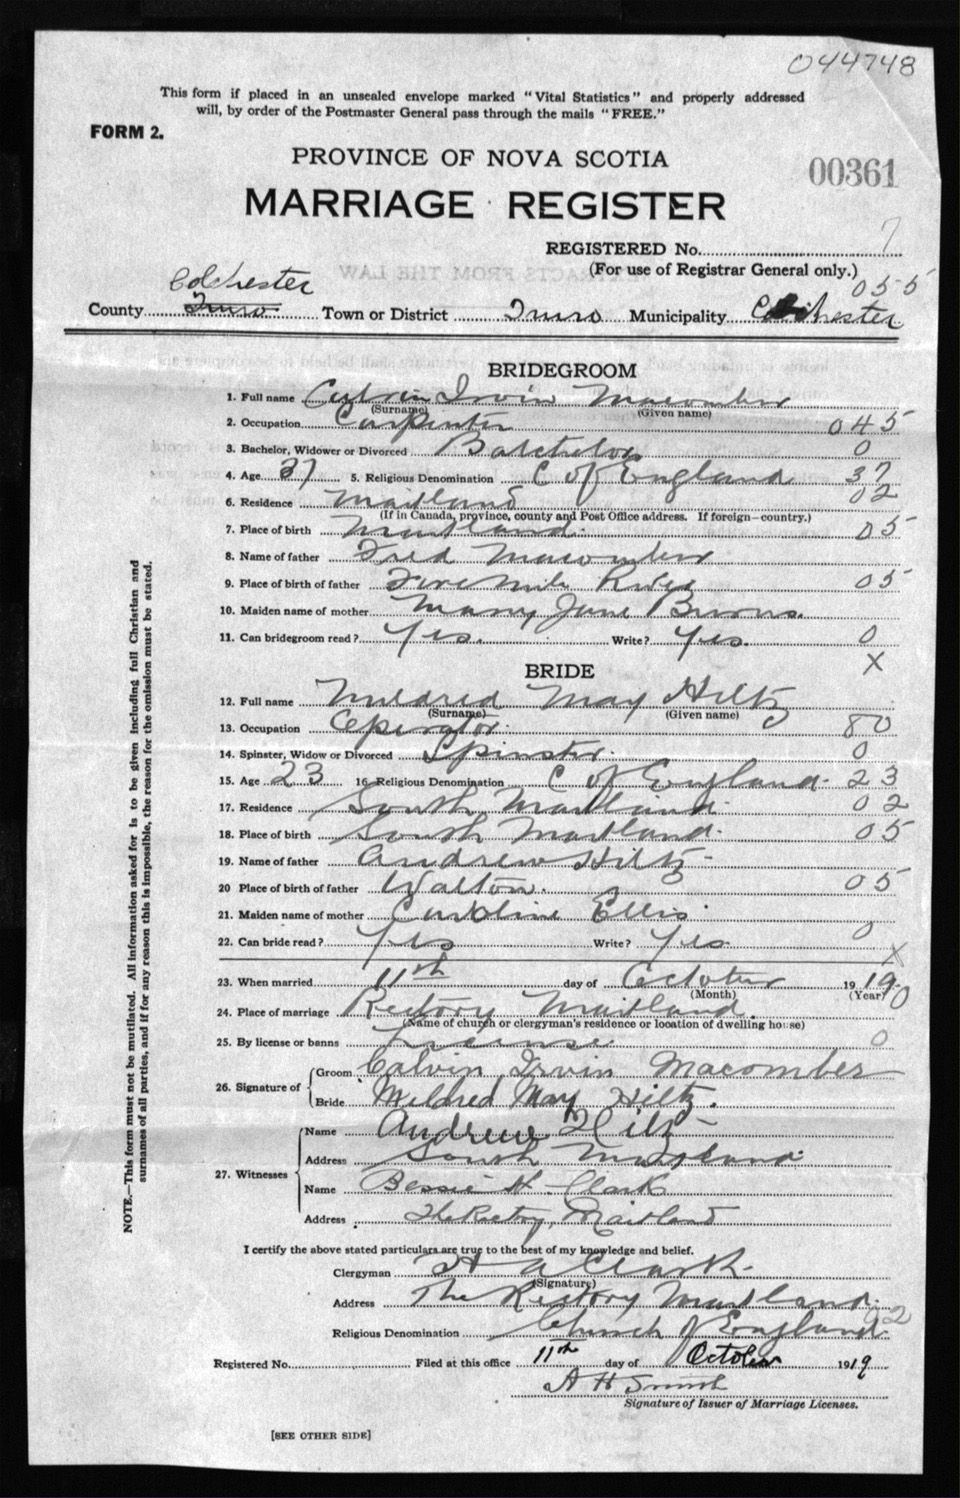 044748
This form if placed in an unsealed envelope marked "Vital Statistics" and properly addressed
will, by order of the Postmaster General pass through the mails "FREE."
FORM 2.
PROVINCE OF NOVA SCOTIA
00361
MARRIAGE REGISTER
REGISTERED No. 7
(For use of Registrar General only.)
055
Colchester
County Truro Town or District Truro Municipality Colchester
BRIDEGROOM
1. Full name Calvin Irvin Macomber
(Surname) (Given name)
2. Occupation Carpenter 045
3. Bachelor, Widower or Divorced Batchelor 0
4. Age 37 5. Religious Denomination C of England 37
6. Residence Maitland 02
(If in Canada, province, county and Post Office address. If foreign—country.)
7. Place of birth Maitland. 05
8. Name of father Fred Macomber
9. Place of birth of father Five Mile River 05
10. Maiden name of mother Mary Jane Burns.
11. Can bridegroom read? Yes. Write? Yes. 0
X
BRIDE
12. Full name Mildred May Hiltz
(Surname) (Given name)
13. Occupation Operator. 80
14. Spinster, Widow or Divorced Spinster. 0
15. Age 23 16 Religious Denomination C of England. 23
17. Residence South Maitland. 02
18. Place of birth South Maitland. 05
19. Name of father Andrew Hiltz
20 Place of birth of father Walton. 05
21. Maiden name of mother Caroline Ellis
22. Can bride read? Yes Write? Yes 0
X
23. When married 11th day of October 1919.
(Month) (Year) 0
24. Place of marriage Rectory Maitland.
(Name of church or clergyman's residence or location of dwelling house)
25. By license or banns License 0
26. Signature of Groom Calvin Irvin Macomber
Bride Mildred May Hiltz.
27. Witnesses Name Andrew Hiltz
Address South Maitland.
Name Bessie H. Clark
Address The Rectory, Maitland
I certify the above stated particulars are true to the best of my knowledge and belief.
Clergyman H A Clark.
(Signature)
Address The Rectory Maitland.
Religious Denomination Church of England 02
Registered No. Filed at this office 11th day of October 1919
A H Smith
Signature of Issuer of Marriage Licenses.
[SEE OTHER SIDE]
NOTE.—This form must not be mutilated. All information asked for is to be given including full Christian and
surnames of all parties, and if for any reason this is impossible, the reason for the omission must be stated.